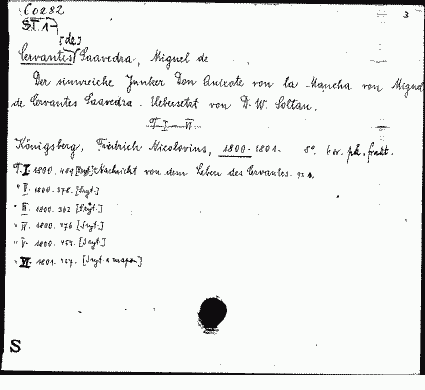 C0282
3
ST 1
[de]
Cervantes Saavedra, Miguel de
Der sinnreiche Junker Don Quixote von la Mancha von Miguel
de Cervantes Saavedra. Uebersetzt von D. W. Soltau.
T. I - VI
Königsberg, Friedrich Nicolovius, 1800-1801. 8°. 6 vv.
T. I 1800. Nachricht von dem Leben des Cervantes.
" II 1800. 378.
" III 1800. 362
" IV 1800. 476
" V 1800.
" VI 1801.
S